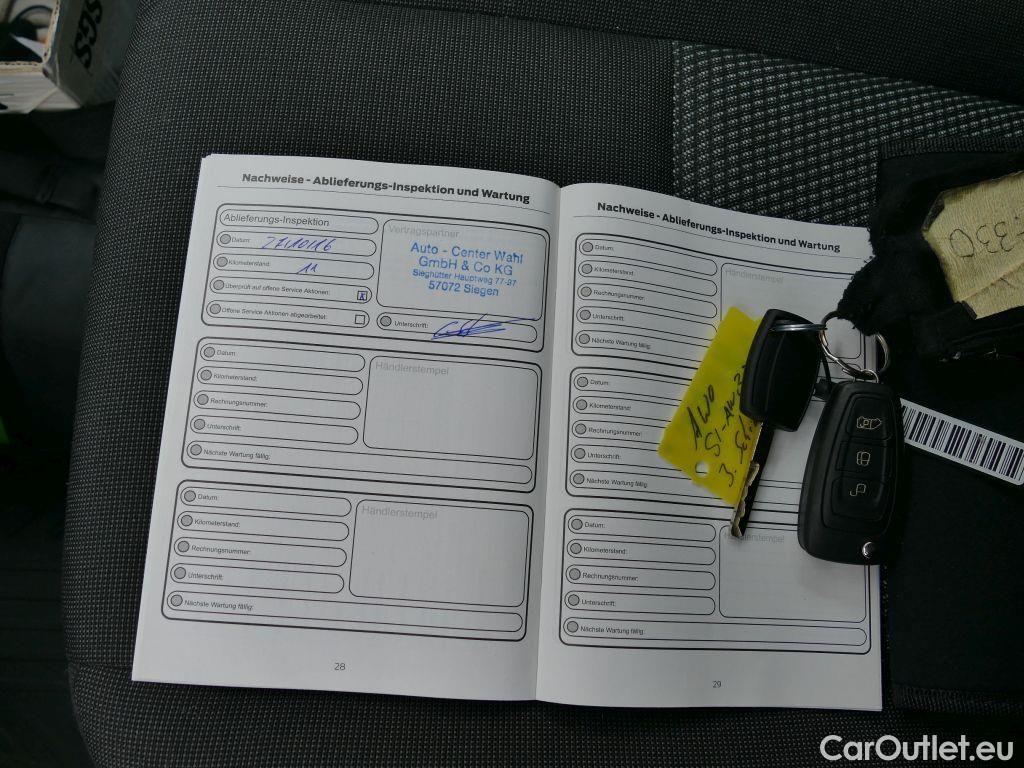 SGS
Nachweise - Ablieferungs-Inspektion und Wartung
Ablieferungs-Inspektion
Datum: 27/10/16
Kilometerstand: 11
Überprüft auf offene Service Aktionen: x
Offene Service Aktionen abgearbeitet:
Vertragspartner
Auto - Center Wahl
GmbH & Co KG
Sieghütter Hauptweg 77-97
57072 Siegen
Unterschrift:
Datum:
Kilometerstand:
Rechnungsnummer:
Unterschrift:
Nächste Wartung fällig:
Händlerstempel
Datum:
Kilometerstand:
Rechnungsnummer:
Unterschrift:
Nächste Wartung fällig:
Händlerstempel
28
Nachweise - Ablieferungs-Inspektion und Wartung
Datum:
Kilometerstand:
Rechnungsnummer:
Unterschrift:
Nächste Wartung fällig:
Händlerstempel
Datum:
Kilometerstand:
Rechnungsnummer:
Unterschrift:
Nächste Wartung fällig:
Datum:
Kilometerstand:
Rechnungsnummer:
Unterschrift:
Nächste Wartung fällig:
Händlerstempel
29
AWO
330
CarOutlet.eu